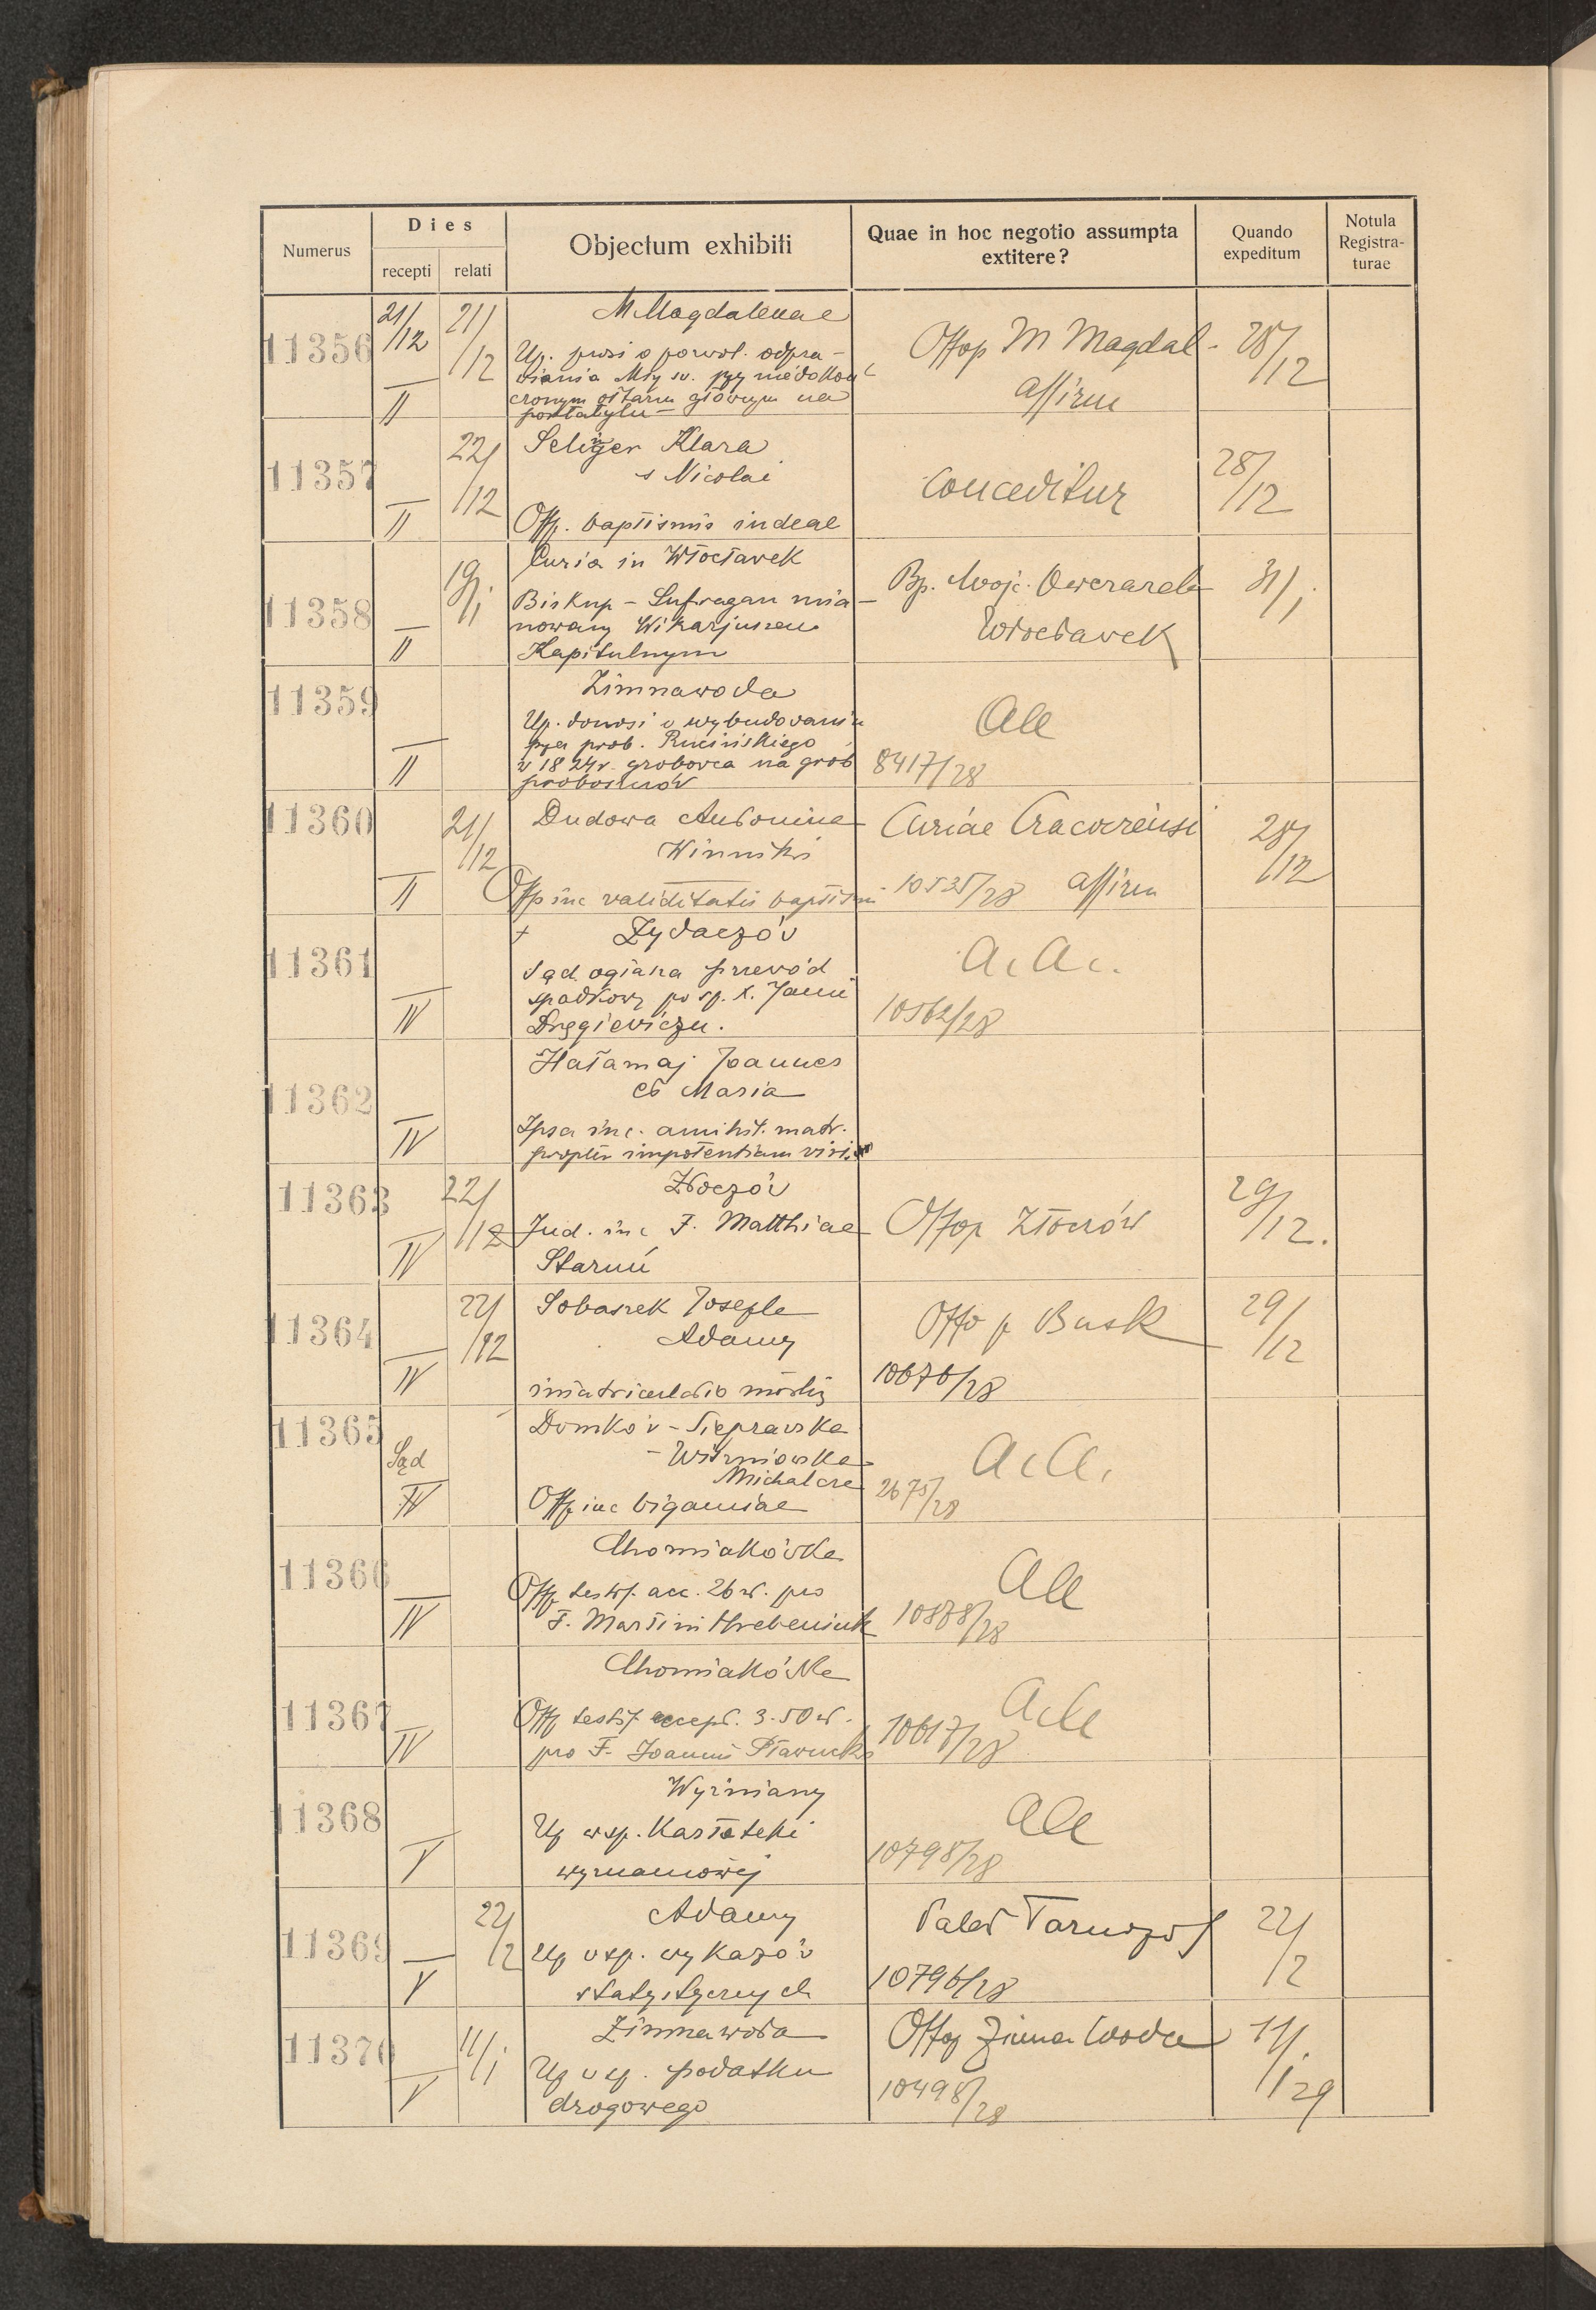 Numerus
Dies
recepti
relati
Objectum exhibiti
Quae in hoc negotio assumpta
extitere?
Quando
expeditum
Notula
Registra-
turae
11356
21/
/12
II
21/
/12
M Magdalenae
Up. prosi o pozwol. odpra-
wiania Mszy św. przy niedokoń
czonym ołtarzu głównym na
portatylu
Offop M Magdal.
affirm
28/
/12
11357
II
22/
/12
Selinger Klara
s Nicolai
Off. baptismis indeae
conceditur
28/
/12
11358
II
19/
/1
Curia in Włocławek
Biskup - Sufragan mia-
nowany Wikarjuszem
Kapitulnym
Bp. Wojc. Owczarek
Włocławek
31/
/1
11359
II
Zimnawoda
Up. donosi o wybudowaniu
prze prob. Rucińskiego
w 1824r. grobowca na grób
proboszczów
Aa
8417/28
11360
II
21/
/12
Dudowa Antonina
Winniki
Off inc validitatis baptismi
Curiae Cracoviensi
10535/28 affirm
28/
/12
11361
IV
+ Żydaczów
Sąd ogłasza przewód
spadkowy po śp. X. Janie
Dręgiewiczu.
A. Ac.
10562/28
11362
IV
Hałamaj Joannes
et Maria
Ipsa inc. annihil. matr.
propter impotentiam viri.
11363
IV
22/
/12
Złoczów
Jud. inc F. Matthiae
Off op Złoczów
29/
/12.
11364
IV
22/
/12
Sobaszek Joseph
Adamy
imatriculatio
Offo p Busk
10676/28
29/
/12
11365
Sąd
IV
Domków - Siepravska
- Wiśniowska
Michalcze
Off inc bigamiae
AcA.
2675/28
11366
IV
Chomiakówka
Off testif. acc. 26 zł. pro
F. Martini Hrebeniuk
Aa
10878/28
11367
IV
Chomiakówka
Off testif accept. 3.50 zł.
pro F. Joannis
AcA
10617/28
11368
V
Wyżniany
Up w sp. Kartoteki
wyznaniowej
Aa
10798/28
11369
V
22/
/2
Adamy
Up w sp. wykazów
statystycznych
10796/28
22/
/2
11370
V
11/
/1
Zimnawoda
Up w sp. podatku
drogowego
Offop Zimna Woda
10498/
/28
11/
/1 29